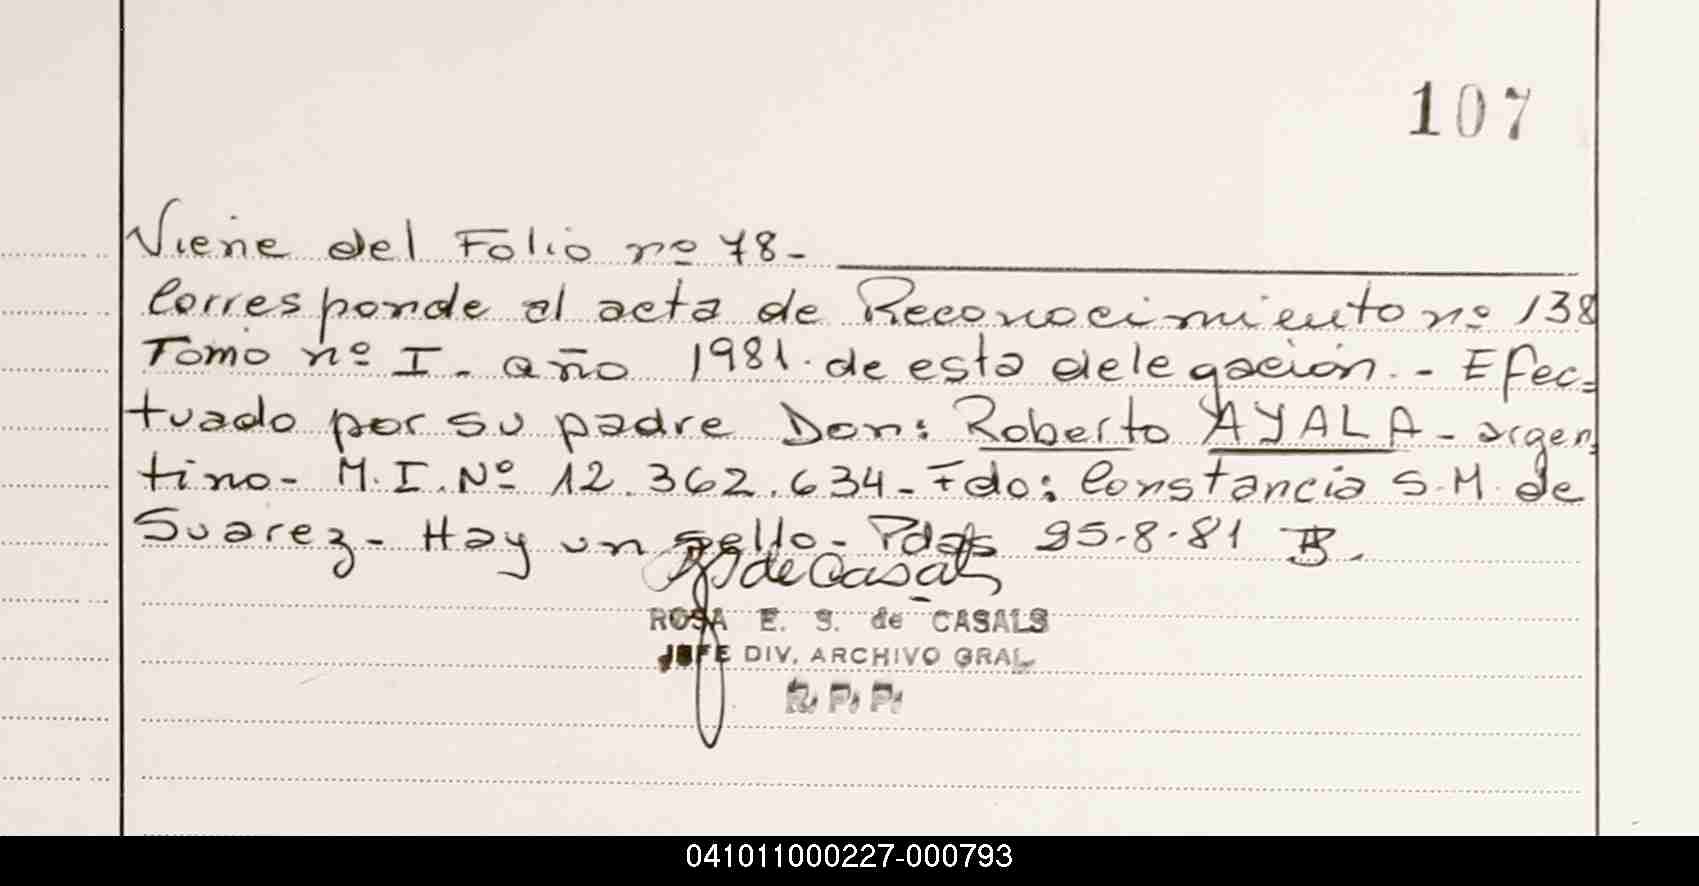 107
Viene del Folio nº 78-
Corresponde al acta de Reconocimiento nº 138
Tomo nº I. año 1981. de esta delegación.- Efec=
tuado por su padre Don: Roberto AYALA - argen=
tino- M.I.Nº 12.362.634- Fdo: Constancia S.M. de
Suarez- Hay un sello- Pdas 25-8-81
de Casals
ROSA E. S. de CASALS
JEFE DIV. ARCHIVO GRAL
R. P. P.
041011000227-000793